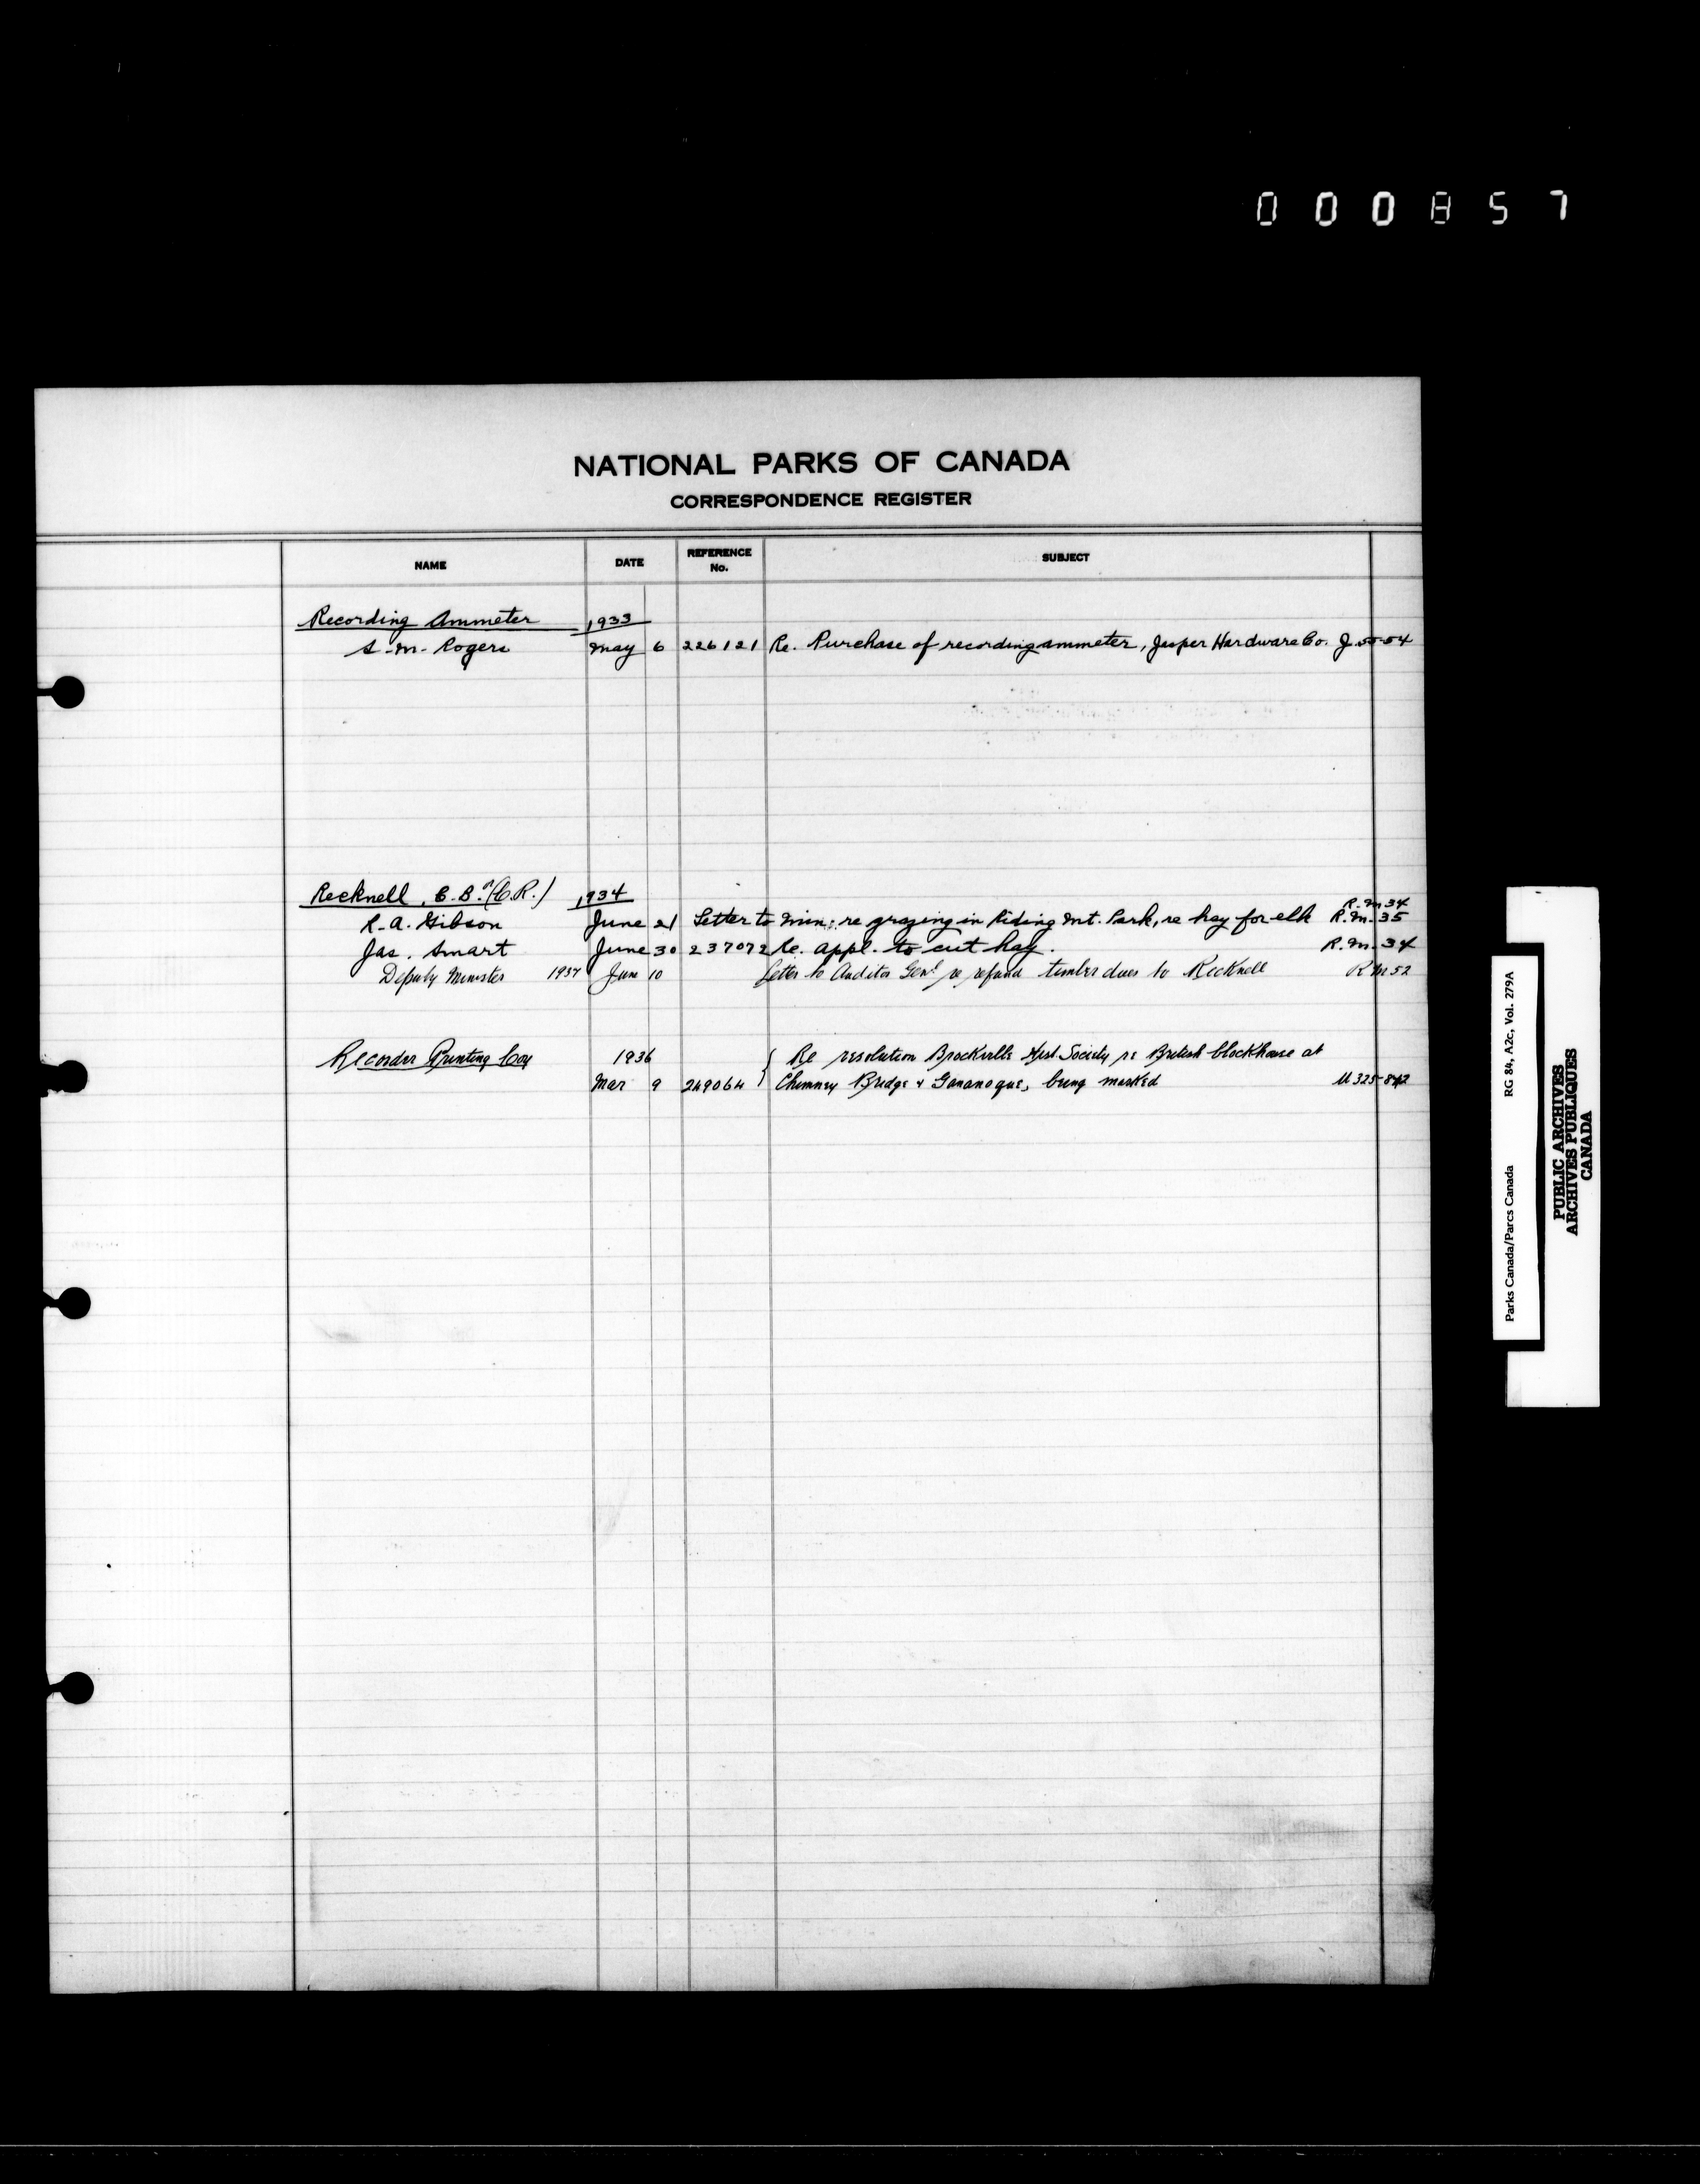 000857
NATIONAL PARKS OF CANADA
CORRESPONDENCE REGISTER
NAME DATE REFERENCE No. SUBJECT
Recording Ammeter 1933
S. M. Rogers May 6 226121 Re. Purchase of recording ammeter, Jasper Hardware Co. J.55-54
Recknell, C.B. or (C.R.) 1934 R.M 34
R.A. Gibson June 21 Letter to Min: re grazing in Riding Mt. Park, re hay for elk R.M. 35
Jas. Smart June 30 237072 Re. appl. to cut hay. R.M. 34
Deputy Minister 1937 June 10 Letter to Auditor Genl re refund timber dues to Recknell R M 52
Recorder Printing Coy 1936 { Re resolution Brockville Hist. Society re British blockhouse at
Mar 9 249064 Chimney Bridge & Gananoque, being marked U 325-842
Parks Canada/Parcs Canada RG 84, A2c, Vol. 279A
PUBLIC ARCHIVES
ARCHIVES PUBLIQUES
CANADA